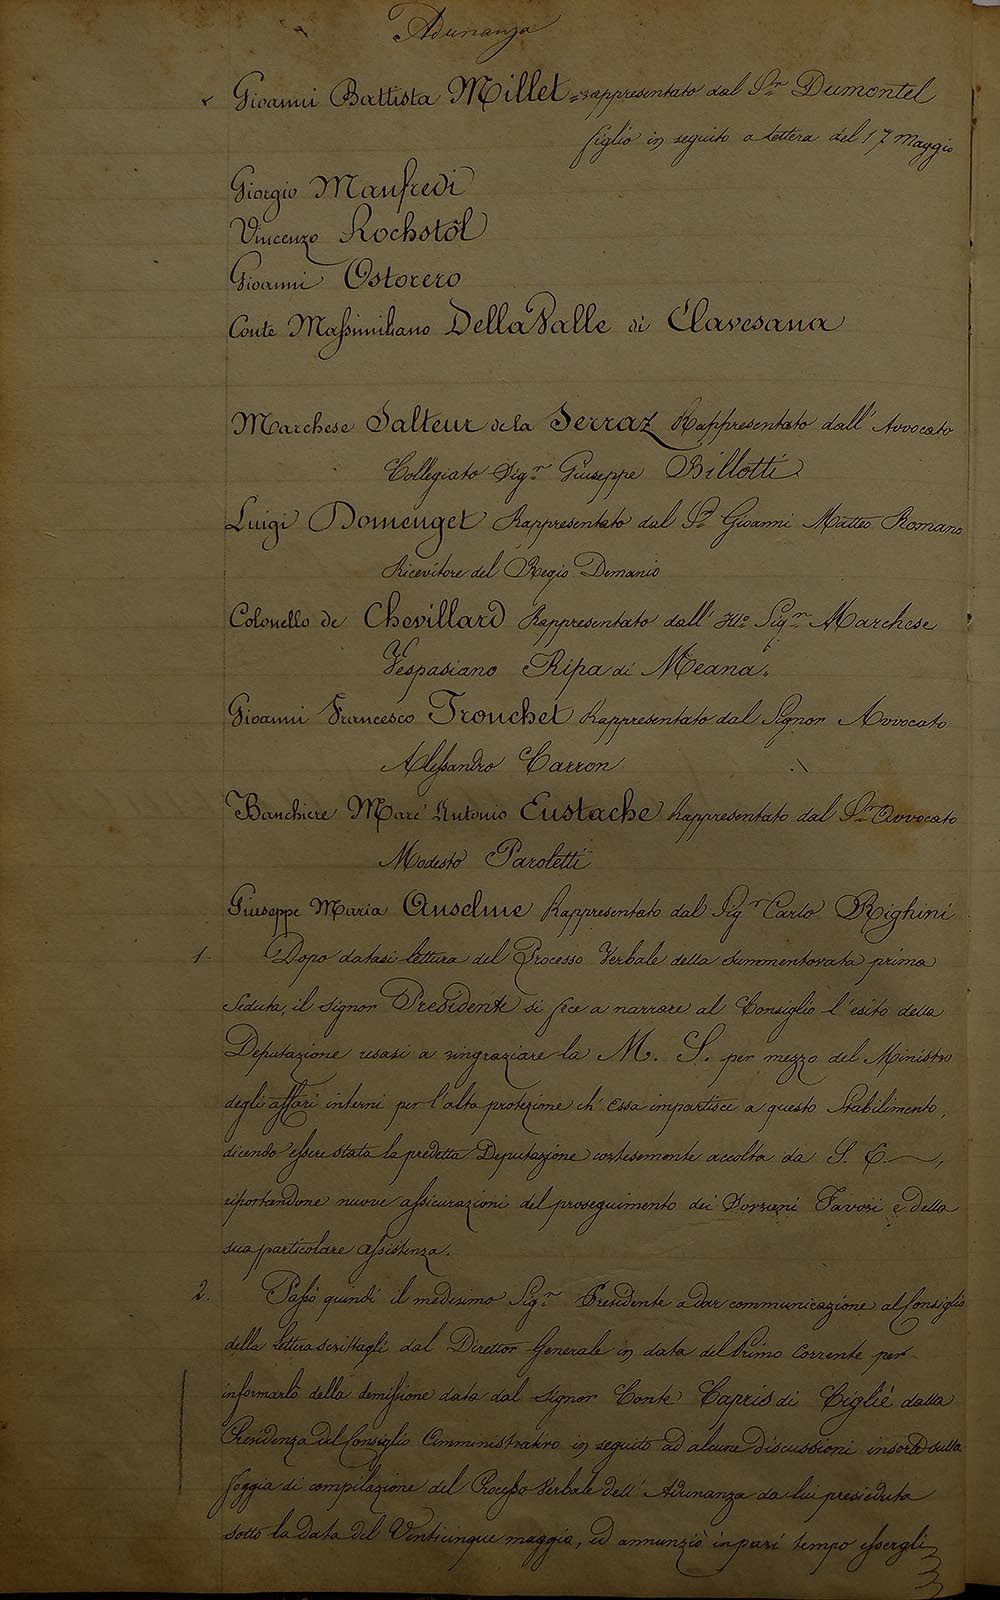 Adunanza
Gioanni Battista Millet = rappresentato dal Sr Dumontel
figlio in seguito a lettera del 17 Maggio
Giorgio Manfredi
Vincenzo Rochstòl
Gioanni Ostorero
Conte Massimiliano Della Valle di Clavesana
Marchese Salteur de la Serraz Rappresentato dall' Avvocato
Collegiato Sigr Giuseppe Billotti
Luigi Domenget Rappresentato dal Sr Gioanni Matteo Romano
Ricevitore del Regio Demanio
Colonello de Chevillard Rappresentato dall' Illo Sigr Marchese
Vespasiano Ripa di Meana.
Gioanni Francesco Tronchet Rappresentato dal Signor Avvocato
Alessandro Carron
Banchiere Marc' Antonio Eustache Rappresentato dal Sr Avvocato
Modesto Paroletti
Giuseppe Maria Anselme Rappresentato dal Sigr Carlo Righini
1. Dopo datasi lettura del Processo Verbale della summentovata prima
Seduta, il signor Presidente si fece a narrare al Consiglio l'esito della
Deputazione resasi a ringraziare la M. S. per mezzo del Ministro
degli affari interni per l'alta protezione ch' Essa impartisce a questo Stabilimento,
dicendo essere stata la predetta Deputazione cortesemente accolta da S. E.,
riportandone nuove assicurazioni del proseguimento dei Sovrani Favori e della
sua particolare assistenza.
2. Passò quindi il medesimo Sigr Presidente a dar communicazione al Consiglio
della lettera scrittagli dal Direttor Generale in data del Primo Corrente per
informarlo della demissione data dal signor Conte Capris di Cigliè dalla
Presidenza del Consiglio Amministrativo in seguito ad alcune discussioni insorte sulla
foggia di compilazione del Processo Verbale dell' Adunanza da lui presieduta
sotto la data del Venticinque maggio, ed annunziò in pari tempo essergli